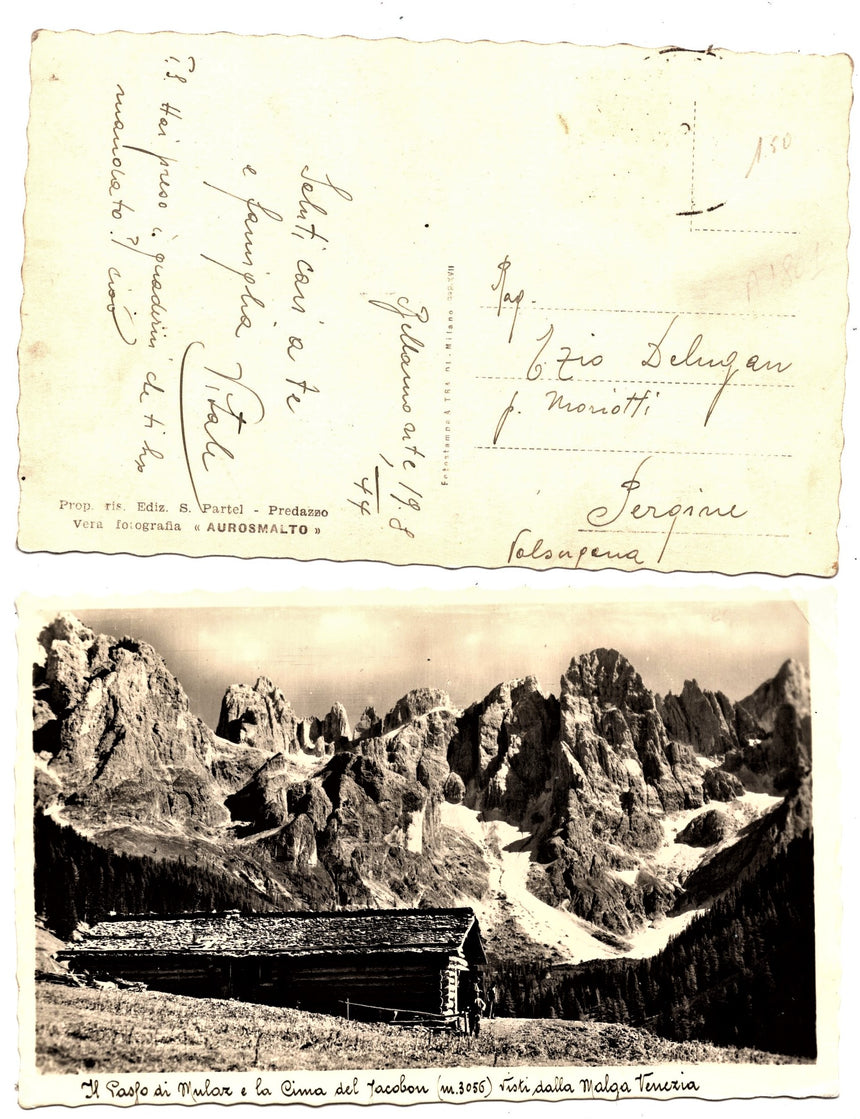 P.S Hai preso i quaderni che ti ho
mandato?) ciao
Saluti cari a te
e famiglia Vitali
Bellamonte 19.8
44
Prop. ris. Ediz. S. Partel - Predazzo
Vera fotografia « AUROSMALTO »
Milano
1.50
Rag.
Ezio Delugan
p. Moriotti
Pergine
Valsugana
Il Passo di Mulaz e la Cima del Focobon (m. 3056) visti dalla Malga Venezia